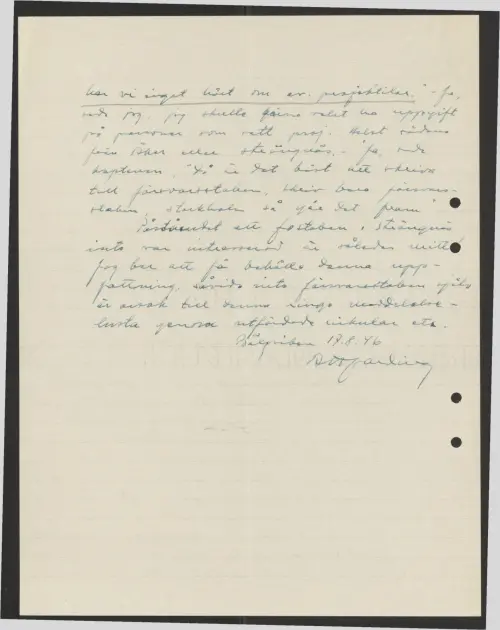 har vi inget hört om ev. projektiler." - Ja,
sade jag. jag skulle gärna velat ha uppgift
på personer som sett proj. helst sådana
från Åker eller Strängnäs. - "Ja, sade
kaptenen, "Då är det bäst att skriva
till försvarsstaben, skriv bara försvars-
staben, Stockholm så går det fram"
Påståendet att fostaben i Strängnäs
inte var intresserad är således
Jag ber att få behålla denna upp-
fattning, såvida inte försvarsstaben själv
är orsak till denna ringa meddelelse-
lusta genom utfärdade cirkulär etc.
18.8.46